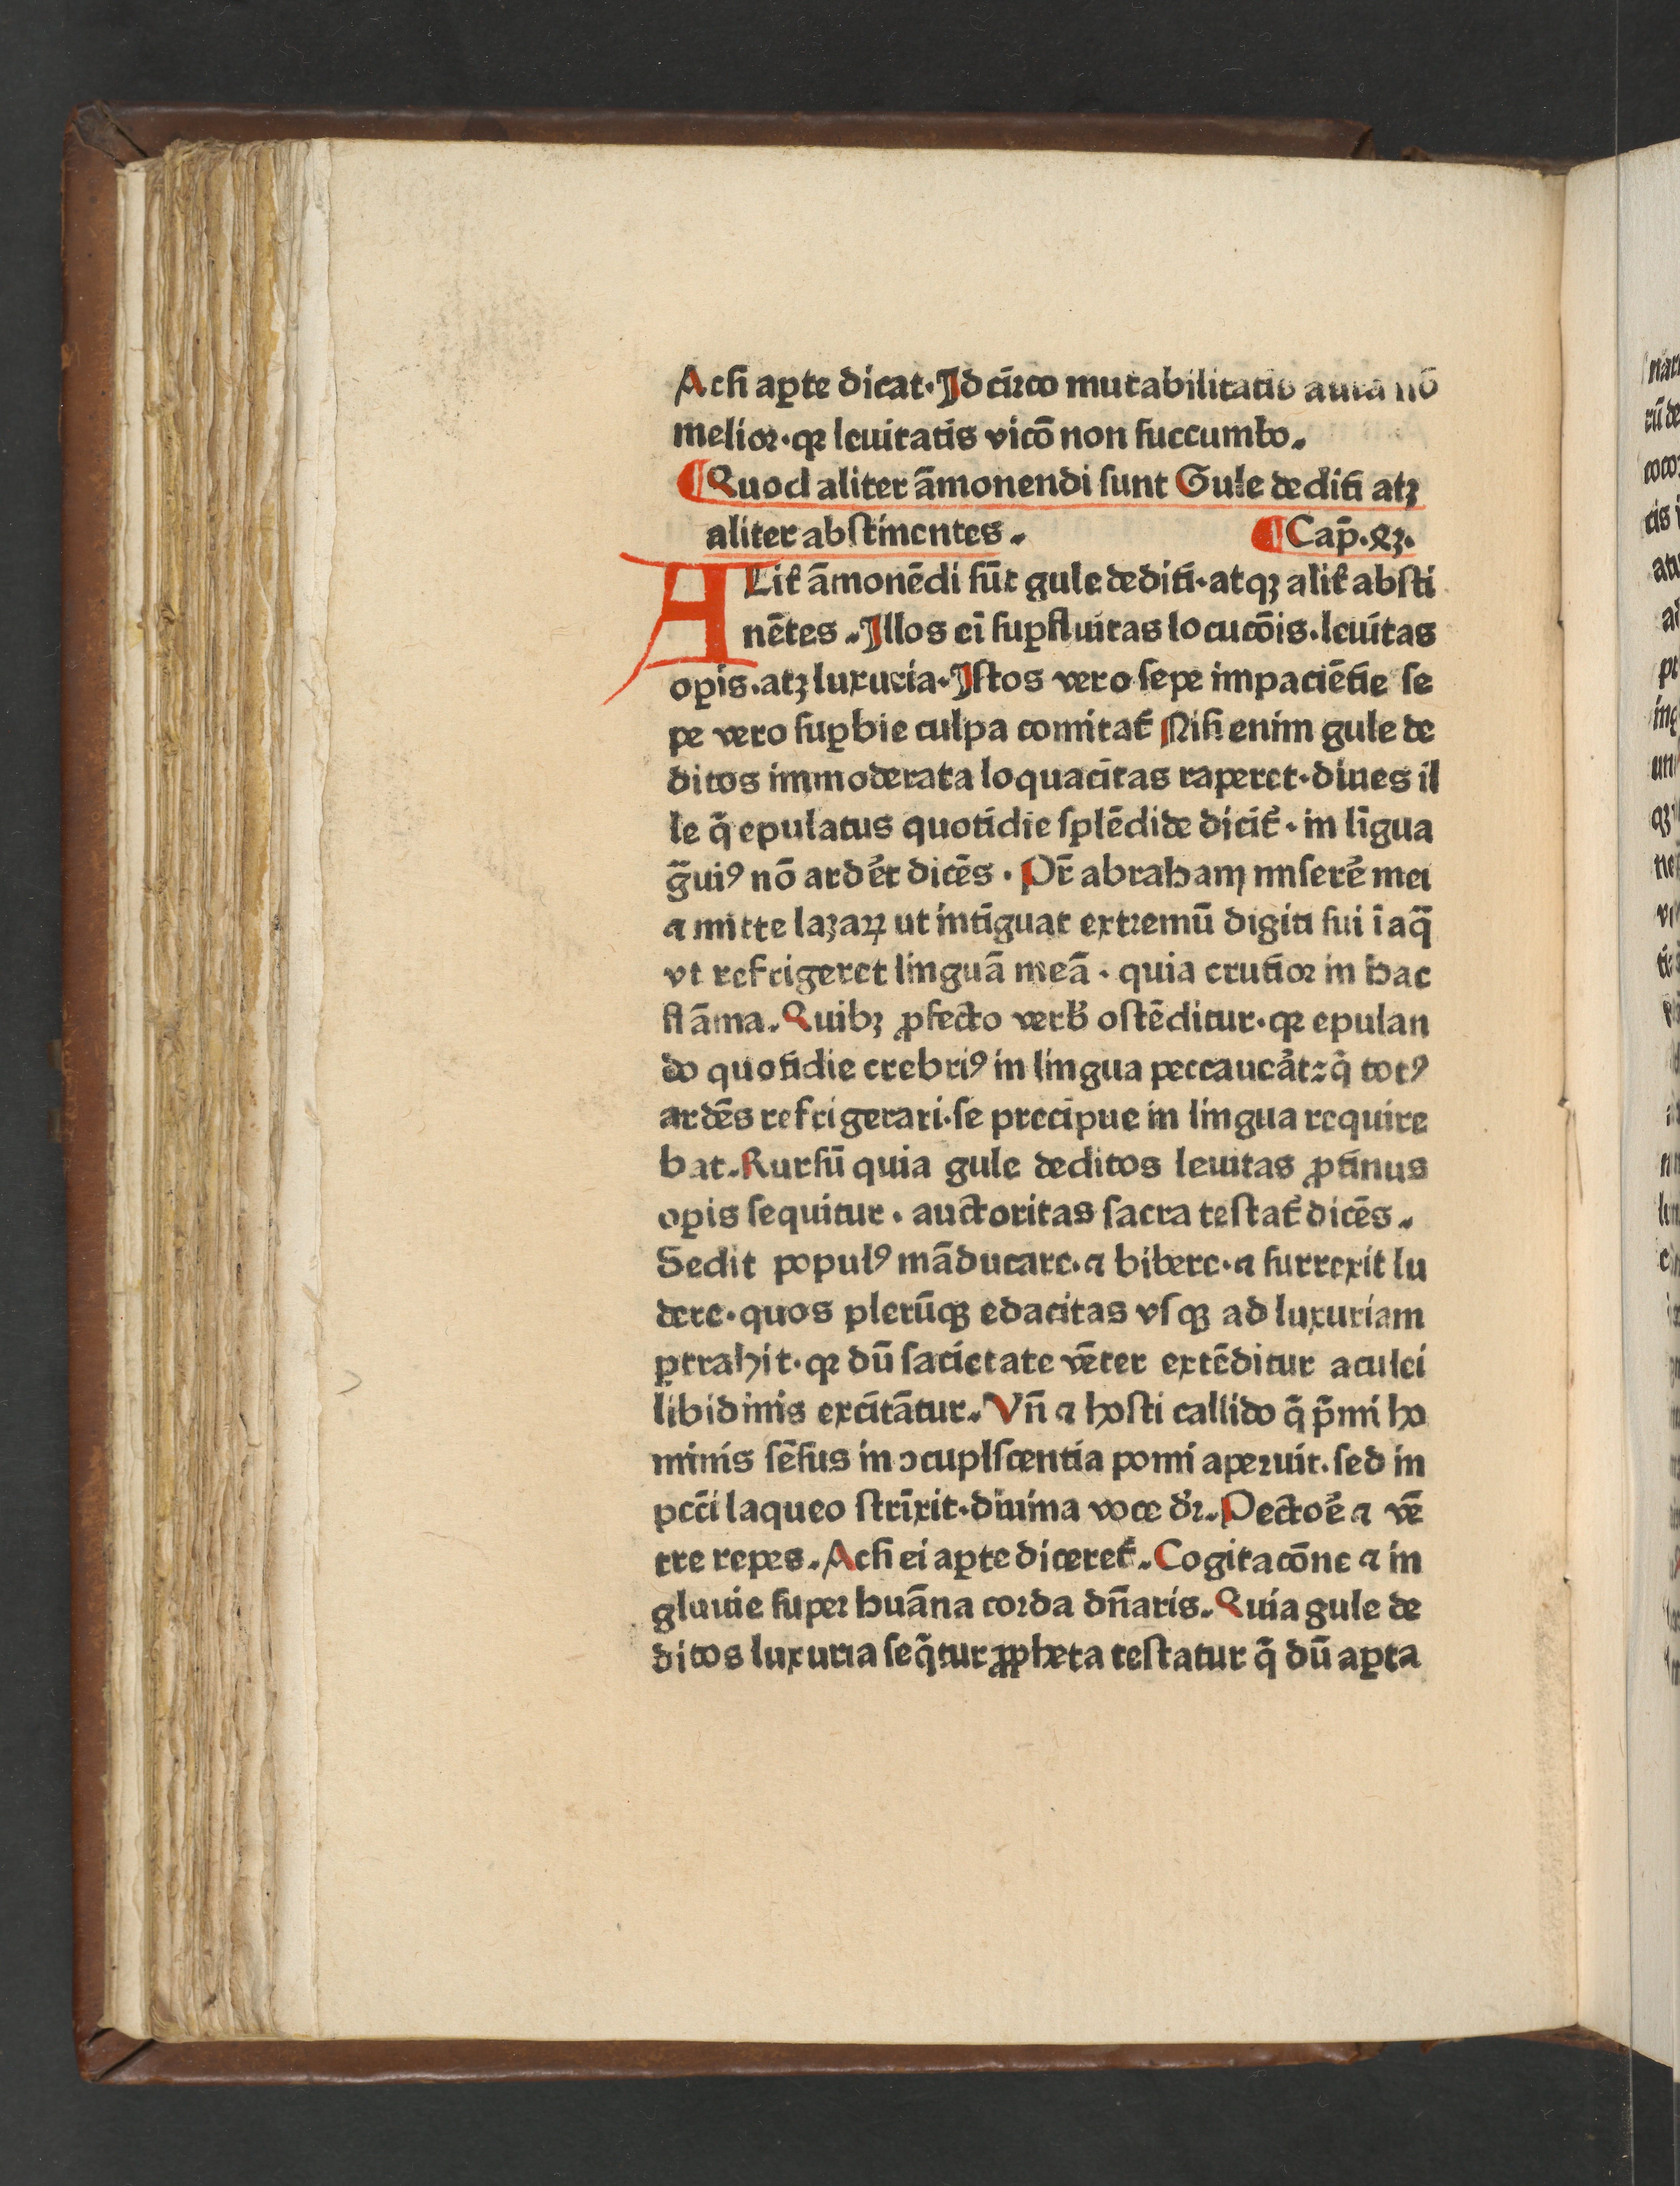 Acſi aꝑte dicat·Idcirco mutabilitatis aura nō
melior·qꝛ leuitatis vicō non ſuccumbo.
¶Quod aliter āmonendi ſunt Gule dediti atꝫ
aliter abſtinentes. ¶Cap̄.xꝫ.
ALit̄ āmonēdi ſūt gule dediti·atqꝫ alit̄ abſti
nētes.Illos ei ſuꝑfluitas locucōis.leuitas
oꝑis.atꝫ luxuria·Iſtos vero ſepe impaciētie ſe
pe vero ſuꝑbie culpa comitat̄ Niſi enim gule de
ditos immoderata loquacitas raperet·diues il
le q̄ epulatus quotidie ſplēdide dicit̄· in līgua
g̃uiꝰ nō ardēt dicēs·Pr̄ abraham miſerē mei
⁊ mitte lazaꝝ ut intīguat extremū digiti ſui ī aq̄
vt refrigeret linguā meā·quia crucior in hac
flāma.Quibꝫ ꝓfecto verb̄ oſtēditur·qꝛ epulan
do quotidie crebriꝰ in lingua peccauēat:q̄ totꝰ
ardēs refrigerari·ſe precipue in lingua require
bat.Rurſū quia gule deditos leuitas ꝓtinus
oꝑis ſequitur·auctoritas ſacra teſtat̄ dicēs.
Sedit populꝰ māducare·⁊ bibere·⁊ ſurrexit lu
dere·quos plerūqꝫ edacitas vſqꝫ ad luxuriam
ꝑtrahit·qꝛ dū ſacietate vēter extēditur aculei
libidinis excitātur.Vn̄ ⁊ hoſti callido q̄ p̄mi ho
minis ſēſus in ↄcupiſcentia pomi aperuit.ſed in
pcc̄i laqueo ſtrīxit·diuina voce dr̄.Pectoē ⁊ vē
tre repes.Acſi ei aꝑte diceret̄.Cogitacōne ⁊ in
gluuie ſuper huāna corda dn̄aris.Quia gule de
ditos luxuria ſeq̄tur ꝓpheta teſtatur q̄ dū aꝑta